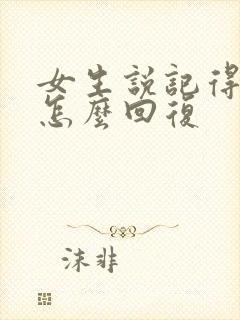 女生說記得
怎麼回復
沫非